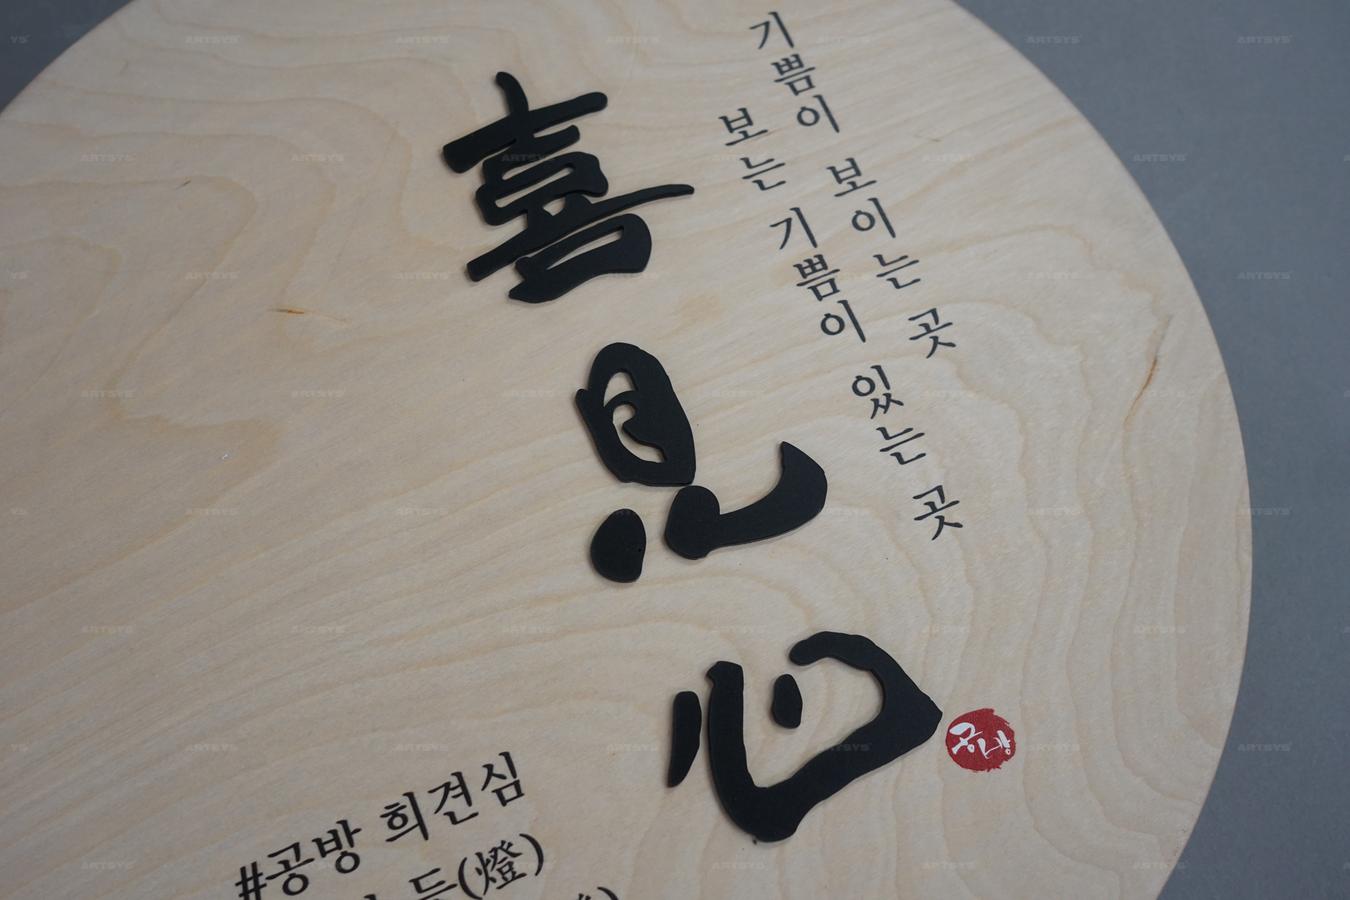 기쁨이 보이는 곳
보는 기쁨이 있는 곳
喜見心
공방
#공방 희견심
등(燈)